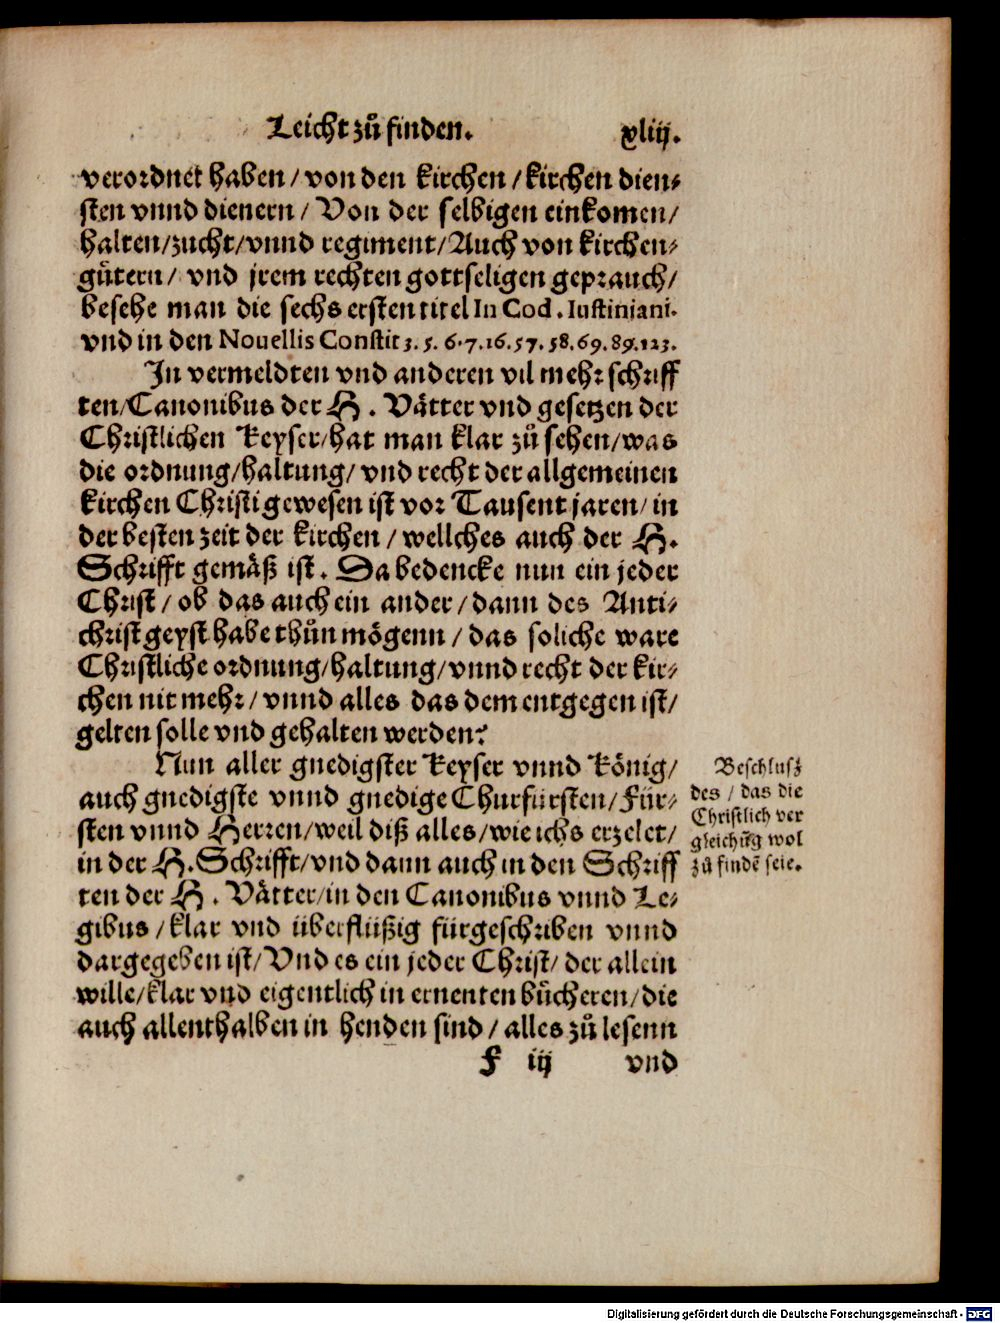 Leicht zů finden. xliij.
verordnet haben / von den kirchen / kirchen dien⸗
sten vnnd dienern / Von der selbigen einkomen /
halten / zucht / vnnd regiment / Auch von kirchen⸗
gůtern / vnd jrem rechten gottseligen geprauch /
besehe man die sechs ersten titel In Cod. Iustiniani.
vnd in den Nouellis Constit 3. 5. 6. 7. 16. 57. 58. 69. 89. 123.
In vermeldten vnd anderen vil mehr schriff
ten / Canonibus der H. Vätter vnd gesetzen der
Christlichen Keyser / hat man klar zů sehen / was
die ordnung / haltung / vnd recht der allgemeinen
kirchen Christi gewesen ist vor Tausent jaren / in
der besten zeit der kirchen / wellches auch der H.
Schrifft gemäß ist. Da bedencke nun ein jeder
Christ / ob das auch ein ander / dann des Anti⸗
christ geyst habe thůn mögenn / das soliche ware
Christliche ordnung / haltung / vnnd recht der kir⸗
chen nit mehr / vnnd alles das dem entgegen ist /
gelten solle vnd gehalten werden?
Nun aller gnedigster Keyser vnnd König /
auch gnedigste vnnd gnedige Churfürsten / Für⸗
sten vnnd Herren / weil diß alles / wie ichs erzelet /
in der H. Schrifft / vnd dann auch in den Schriff
ten der H. Vätter / in den Canonibus vnnd Le⸗
gibus / klar vnd überflüßig fürgeschriben vnnd
dargegeben ist / Vnd es ein jeder Christ / der allein
wille / klar vnd eigentlich in ernenten bůcheren / die
auch allenthalben in henden sind / alles zů lesenn
F iij vnd
Beschlusz
des / das die
Christlich ver
gleichūg wol
zů findē seie.
Digitalisierung gefördert durch die Deutsche Forschungsgemeinschaft - DFG